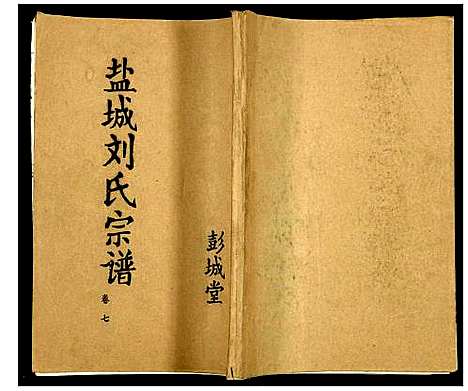 盐城刘氏宗谱
卷七
彭城堂